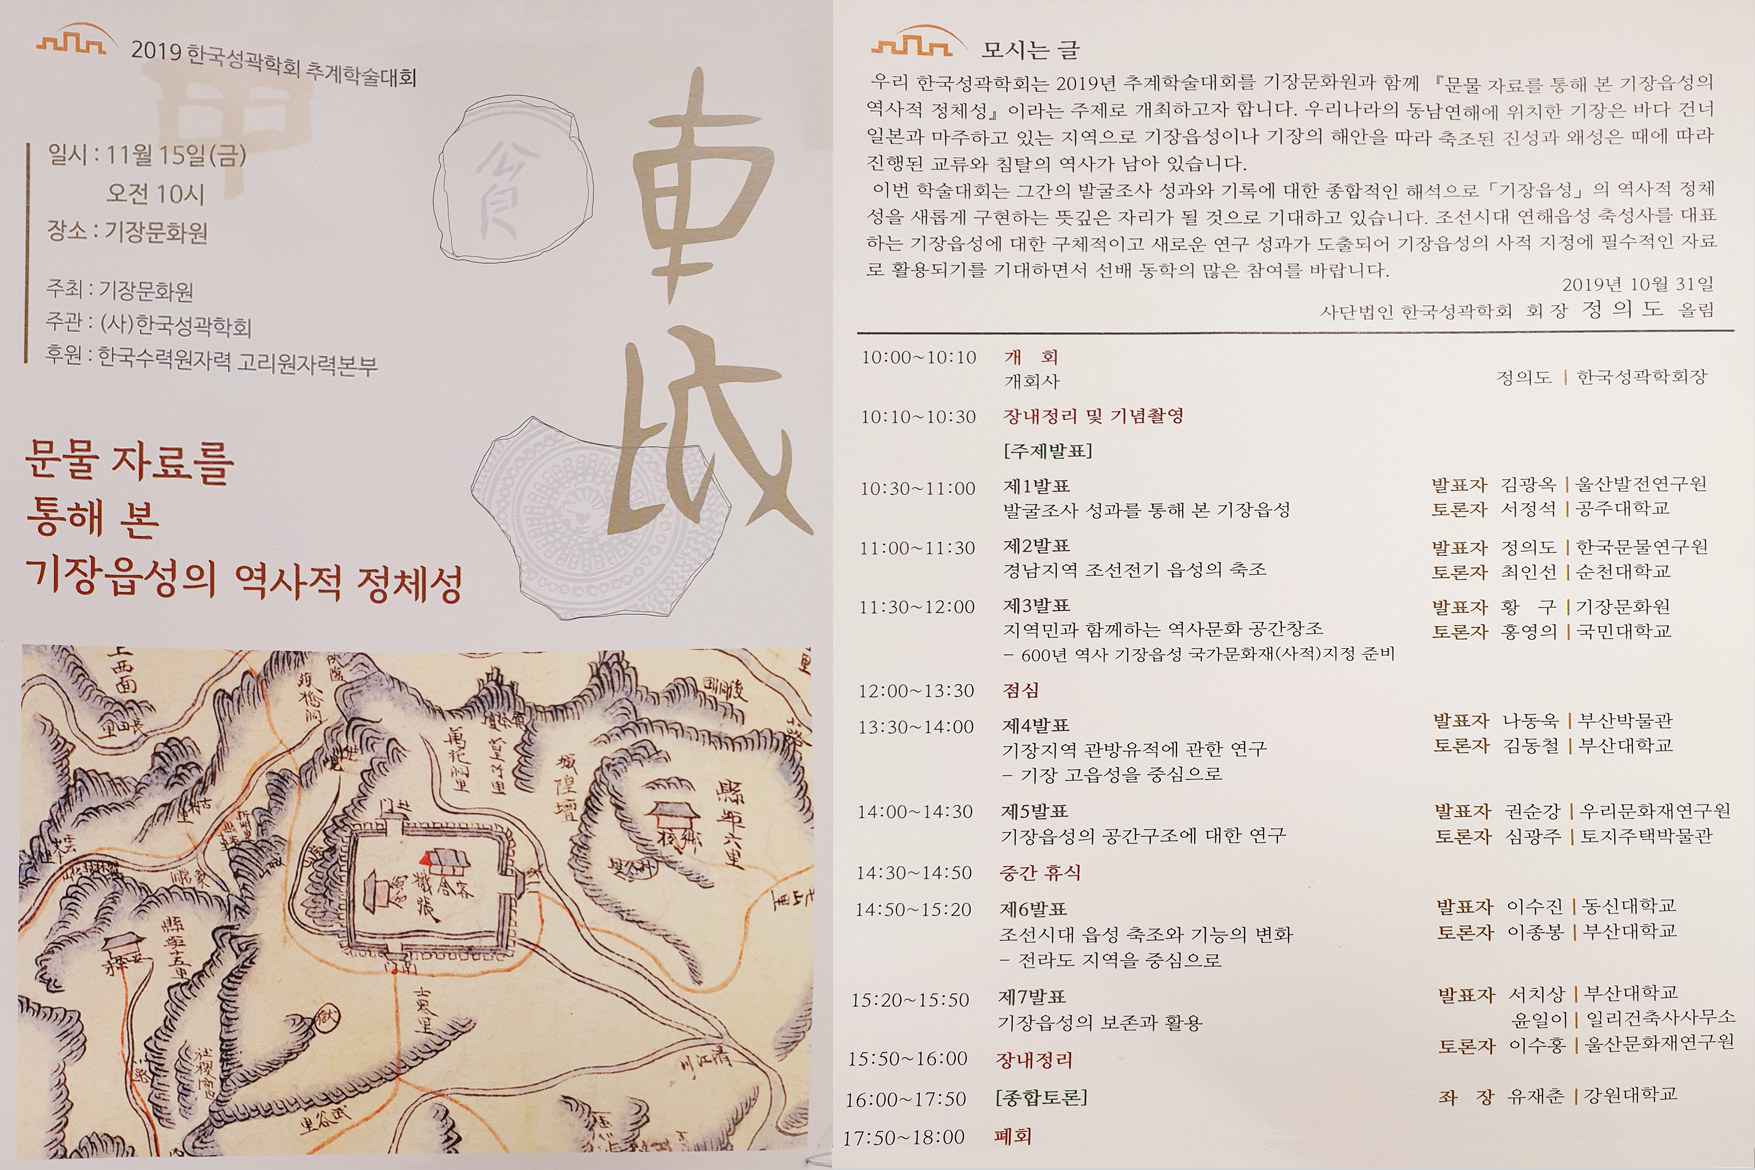 2019 한국성곽학회 추계학술대회
일시 : 11월 15일(금)
오전 10시
장소 : 기장문화원
주최 : 기장문화원
주관 : (사)한국성곽학회
후원 : 한국수력원자력 고리원자력본부
문물 자료를
통해 본
기장읍성의 역사적 정체성
上西面
萬花洞里
城隍壇
縣距六里
鄕校
客舍
機張
縣距十五里
士基里
獄
모시는 글
우리 한국성곽학회는 2019년 추계학술대회를 기장문화원과 함께 『문물 자료를 통해 본 기장읍성의
역사적 정체성』이라는 주제로 개최하고자 합니다. 우리나라의 동남연해에 위치한 기장은 바다 건너
일본과 마주하고 있는 지역으로 기장읍성이나 기장의 해안을 따라 축조된 진성과 왜성은 때에 따라
진행된 교류와 침탈의 역사가 남아 있습니다.
이번 학술대회는 그간의 발굴조사 성과와 기록에 대한 종합적인 해석으로 「기장읍성」의 역사적 정체
성을 새롭게 구현하는 뜻깊은 자리가 될 것으로 기대하고 있습니다. 조선시대 연해읍성 축성사를 대표
하는 기장읍성에 대한 구체적이고 새로운 연구 성과가 도출되어 기장읍성의 사적 지정에 필수적인 자료
로 활용되기를 기대하면서 선배 동학의 많은 참여를 바랍니다.
2019년 10월 31일
사단법인 한국성곽학회 회장 정의도 올림
10:00~10:10 개 회
개회사 정의도 | 한국성곽학회장
10:10~10:30 장내정리 및 기념촬영
[주제발표]
10:30~11:00 제1발표 발표자 김광옥 | 울산발전연구원
발굴조사 성과를 통해 본 기장읍성 토론자 서정석 | 공주대학교
11:00~11:30 제2발표 발표자 정의도 | 한국문물연구원
경남지역 조선전기 읍성의 축조 토론자 최인선 | 순천대학교
11:30~12:00 제3발표 발표자 황 구 | 기장문화원
지역민과 함께하는 역사문화 공간창조 토론자 홍영의 | 국민대학교
- 600년 역사 기장읍성 국가문화재(사적)지정 준비
12:00~13:30 점심
13:30~14:00 제4발표 발표자 나동욱 | 부산박물관
기장지역 관방유적에 관한 연구 토론자 김동철 | 부산대학교
- 기장 고읍성을 중심으로
14:00~14:30 제5발표 발표자 권순강 | 우리문화재연구원
기장읍성의 공간구조에 대한 연구 토론자 심광주 | 토지주택박물관
14:30~14:50 중간 휴식
14:50~15:20 제6발표 발표자 이수진 | 동신대학교
조선시대 읍성 축조와 기능의 변화 토론자 이종봉 | 부산대학교
- 전라도 지역을 중심으로
15:20~15:50 제7발표 발표자 서치상 | 부산대학교
기장읍성의 보존과 활용 윤일이 | 일리건축사사무소
토론자 이수홍 | 울산문화재연구원
15:50~16:00 장내정리
16:00~17:50 [종합토론] 좌 장 유재춘 | 강원대학교
17:50~18:00 폐회